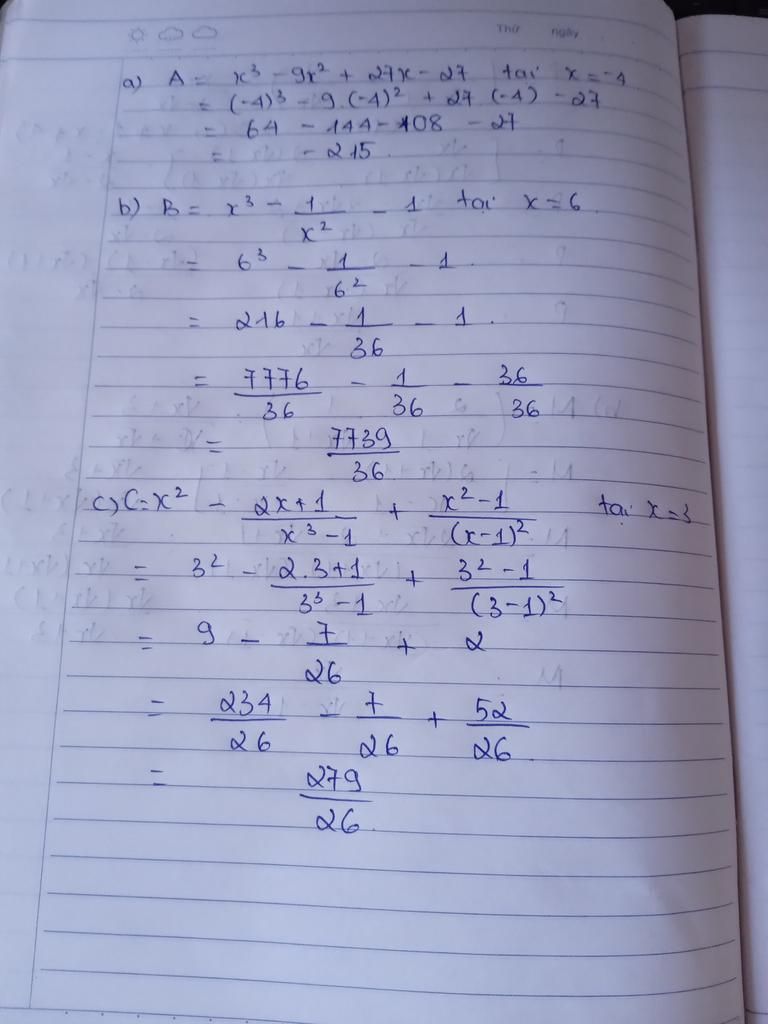 Thứ ngày
a) A = x³ - 9x² + 27x - 27 tại x = -4
= (-4)³ - 9.(-4)² + 27.(-4) - 27
= 64 - 144 - 108 - 27
= - 215.
b) B = x³ - 1/x² - 1 tại x = 6
= 6³ - 1/6² - 1.
= 216 - 1/36 - 1.
= 7776/36 - 1/36 - 36/36
= 7739/36
c) C = x² - (2x+1)/(x³-1) + (x²-1)/(x-1)² tại x = 3
= 3² - (2.3+1)/(3³-1) + (3²-1)/(3-1)²
= 9 - 7/26 + 2
= 234/26 - 7/26 + 52/26
= 279/26